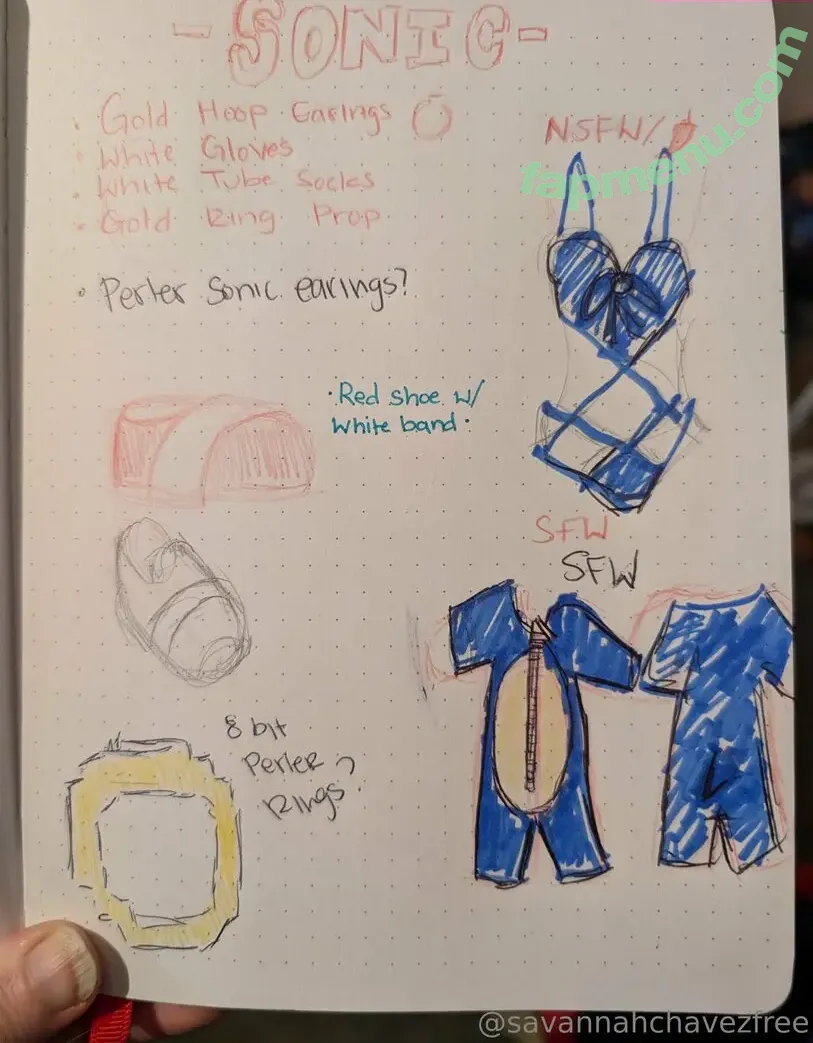 - SONIC -
• Gold Hoop Earings
• White Gloves
• White Tube Socks
• Gold Ring Prop
• Perler Sonic earings?
NSFW/
fapmenu.com
• Red shoe w/
white band •
SFW
SFW
8 bit
Perler
Rings?
@savannahchavezfree